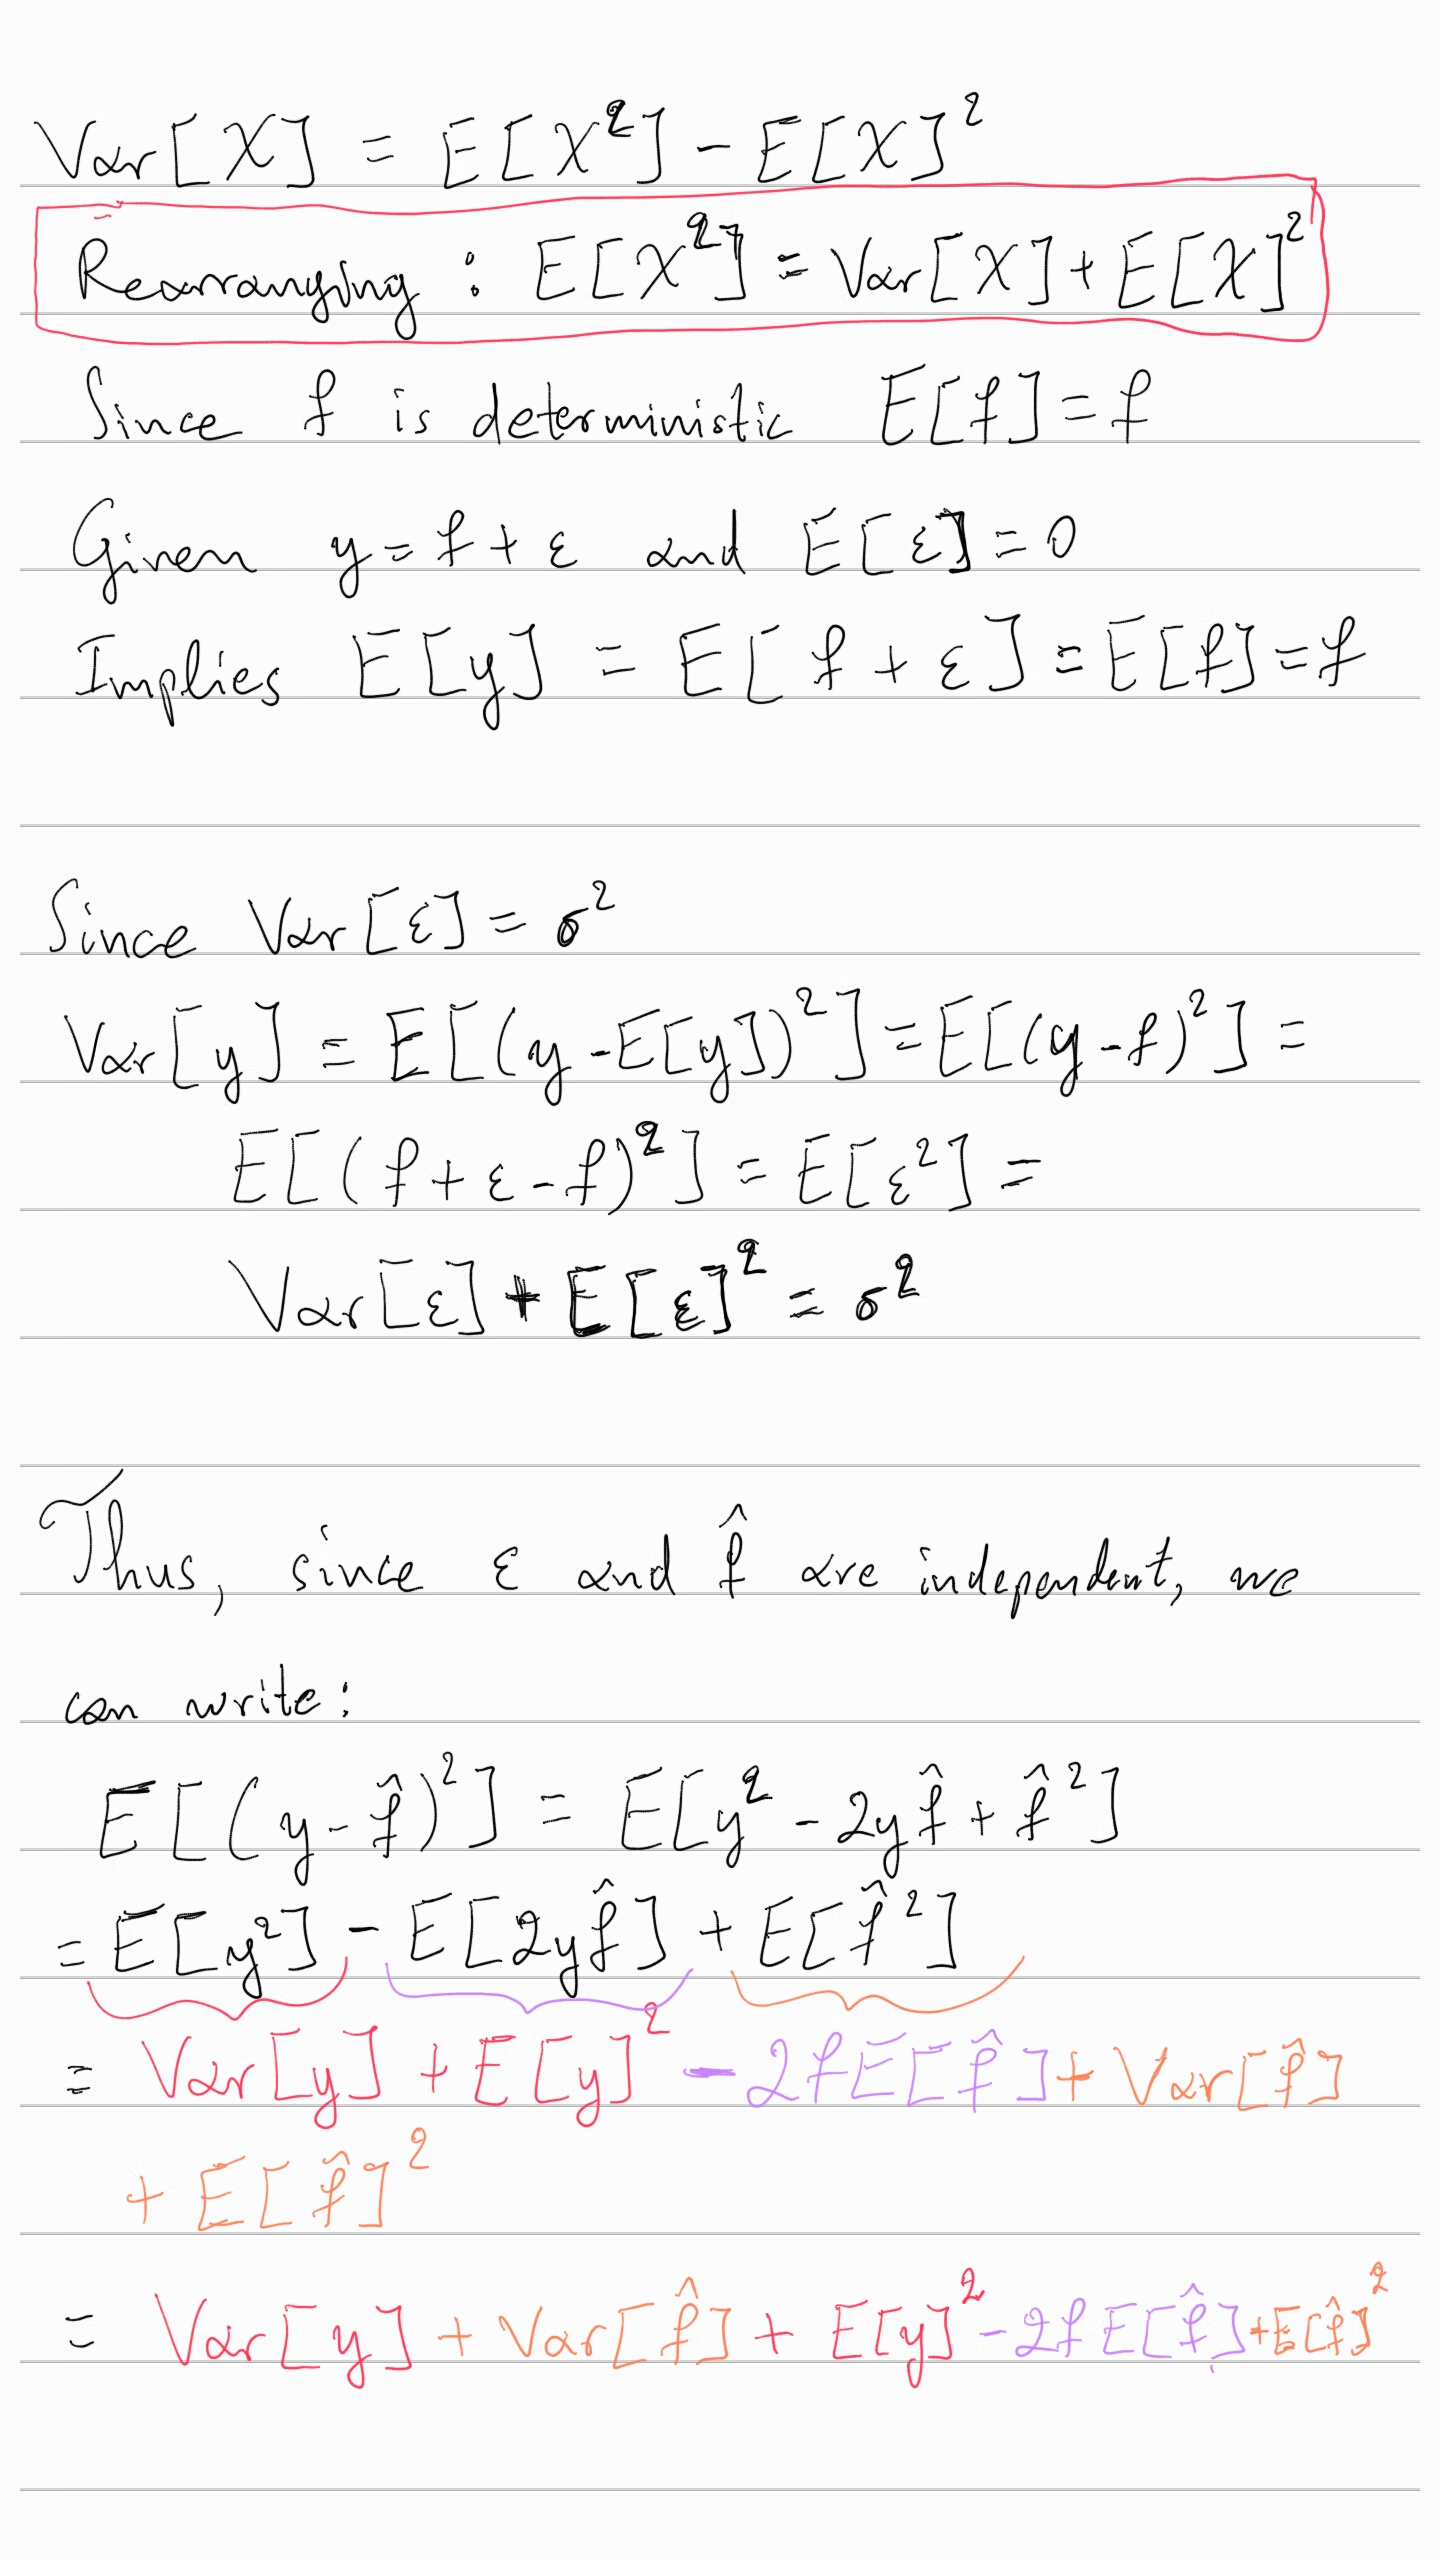 Var[X] = E[X²] - E[X]²
Rearranging : E[X²] = Var[X] + E[X]²
Since f is deterministic E[f] = f
Given y = f + ε and E[ε] = 0
Implies E[y] = E[f + ε] = E[f] = f
Since Var[ε] = σ²
Var[y] = E[(y - E[y])²] = E[(y - f)²] =
E[(f + ε - f)²] = E[ε²] =
Var[ε] + E[ε]² = σ²
Thus, since ε and f̂ are independent, we
can write:
E[(y - f̂)²] = E[y² - 2yf̂ + f̂²]
= E[y²] - E[2yf̂] + E[f̂²]
= Var[y] + E[y]² - 2fE[f̂] + Var[f̂]
+ E[f̂]²
= Var[y] + Var[f̂] + E[y]² - 2fE[f̂] + E[f̂]²